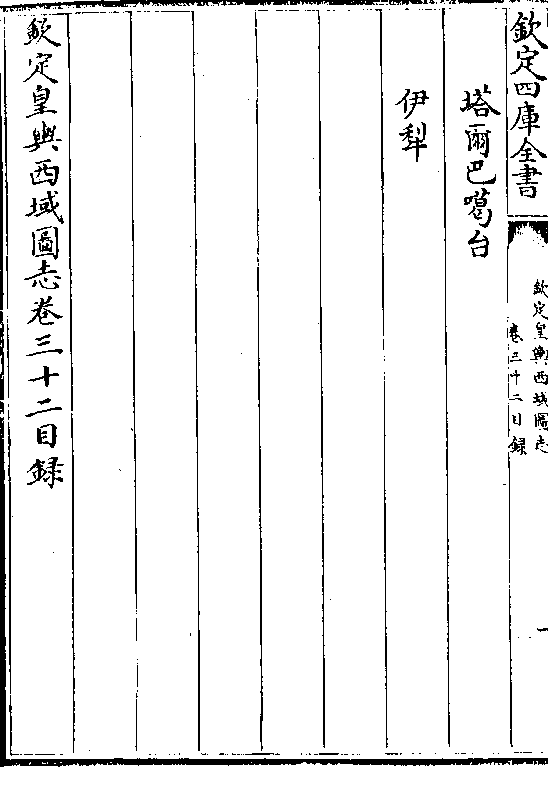 欽定四庫全書
欽定皇輿西域圖志
卷三十二目録
一
塔爾巴噶台
伊犁
欽定皇輿西域圖志卷三十二目録